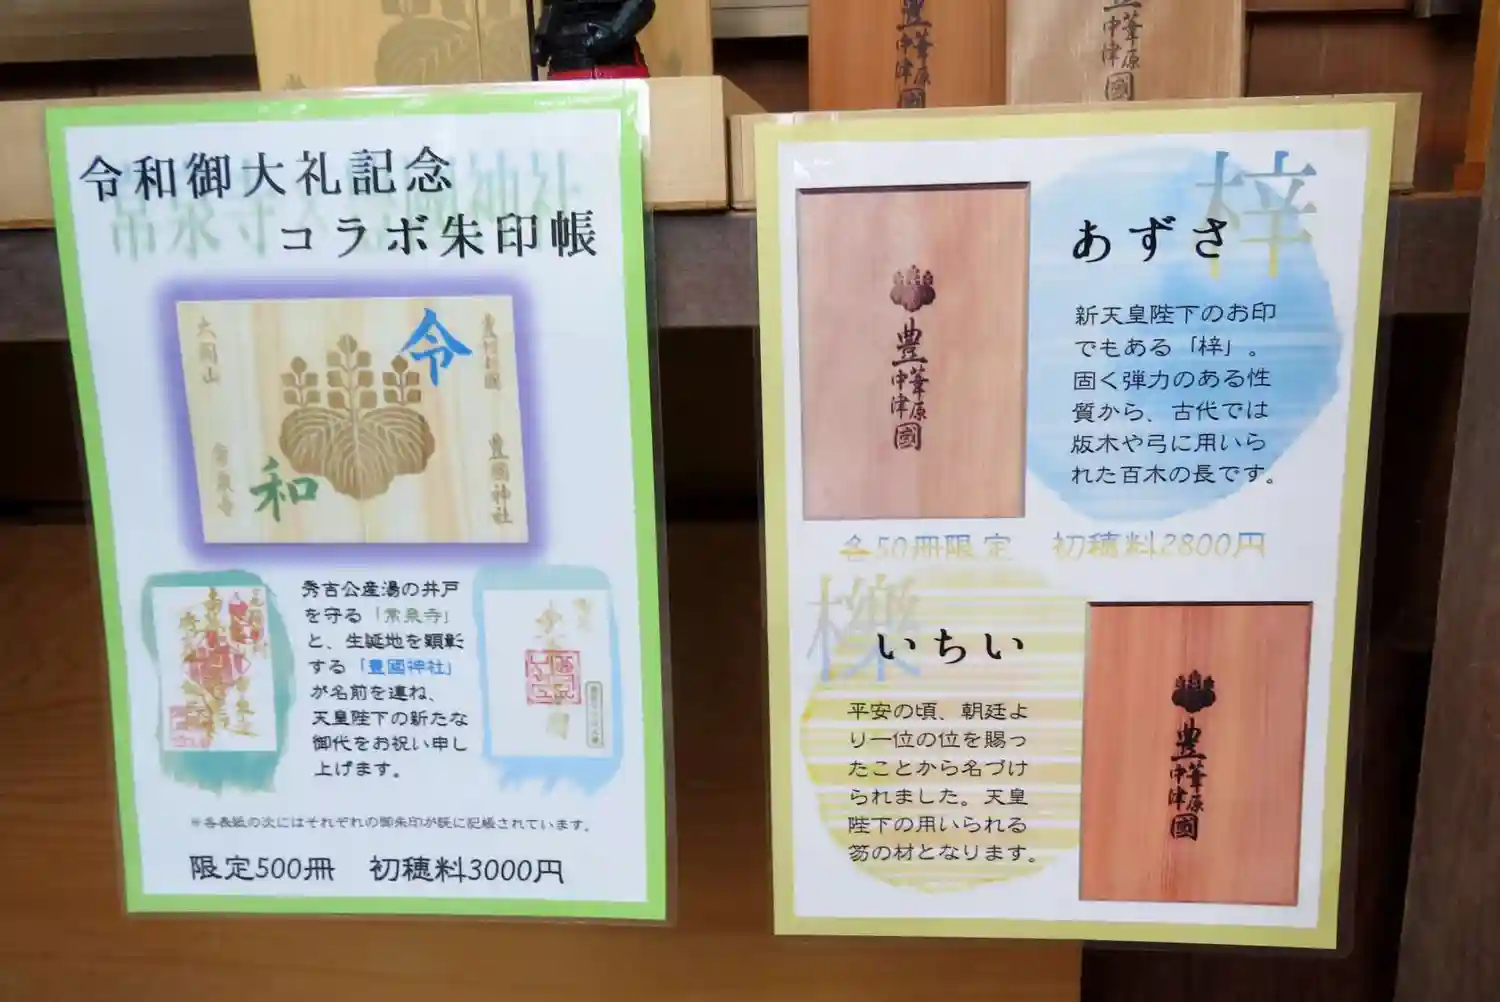 令和御大礼記念
コラボ朱印帳
令
和
太閤山
常泉寺
豊國神社
秀吉公産湯の井戸
を守る「常泉寺」
と、生誕地を顕彰
する「豊國神社」
が名前を連ね、
天皇陛下の新たな
御代をお祝い申し
上げます。
※各表紙の次にはそれぞれの御朱印が既に記帳されています。
限定500冊 初穂料3000円
梓
あずさ
新天皇陛下のお印
でもある「梓」。
固く弾力のある性
質から、古代では
版木や弓に用いら
れた百木の長です。
豊
葦原
中津
國
各50冊限定 初穂料2800円
櫟
いちい
平安の頃、朝廷よ
り一位の位を賜っ
たことから名づけ
られました。天皇
陛下の用いられる
笏の材となります。
豊
葦原
中津
國